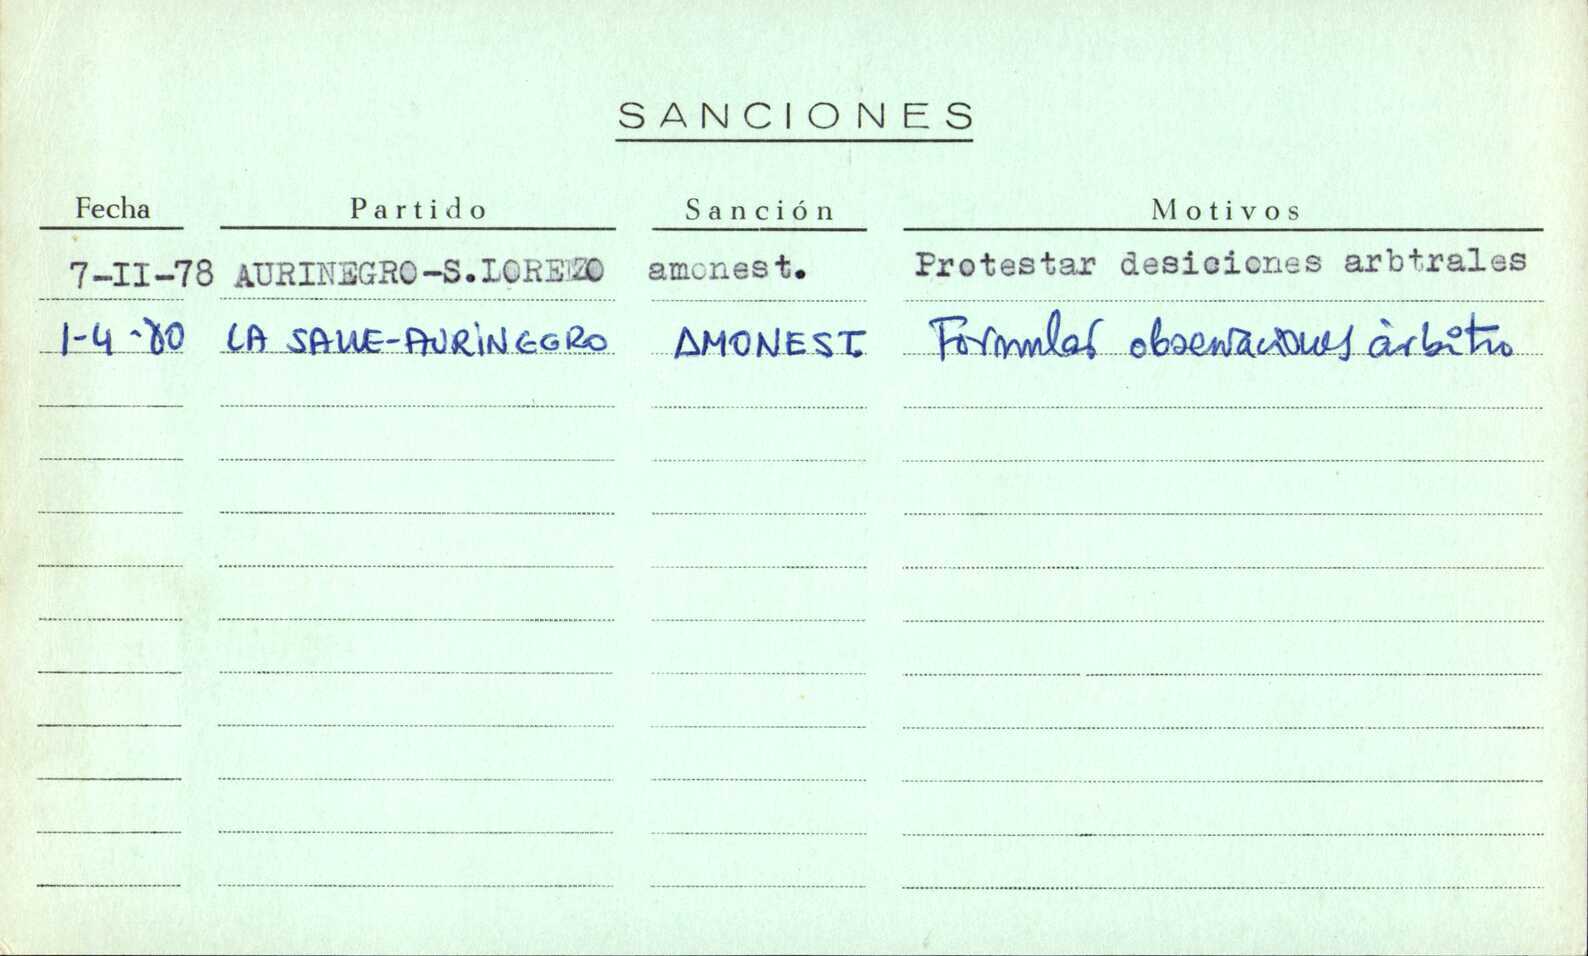 SANCIONES
Fecha Partido Sanción Motivos
7-II-78 AURINEGRO-S.LORENZO amonest. Protestar desiciones arbtrales
1-4-80 LA SALLE-AURINEGRO AMONEST. Formular observaciones árbitro